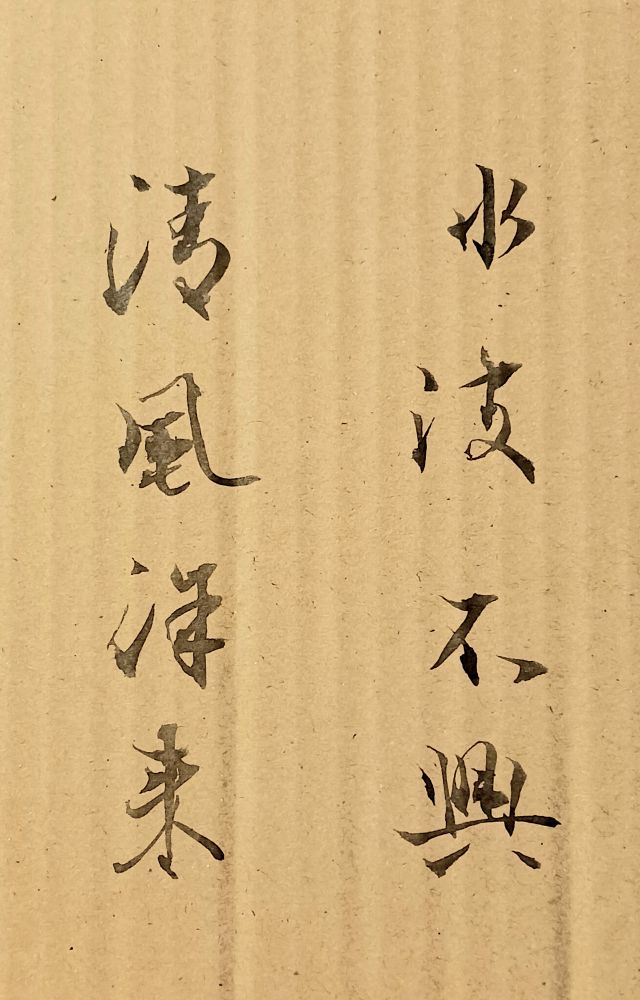 水波不興
清風徐来